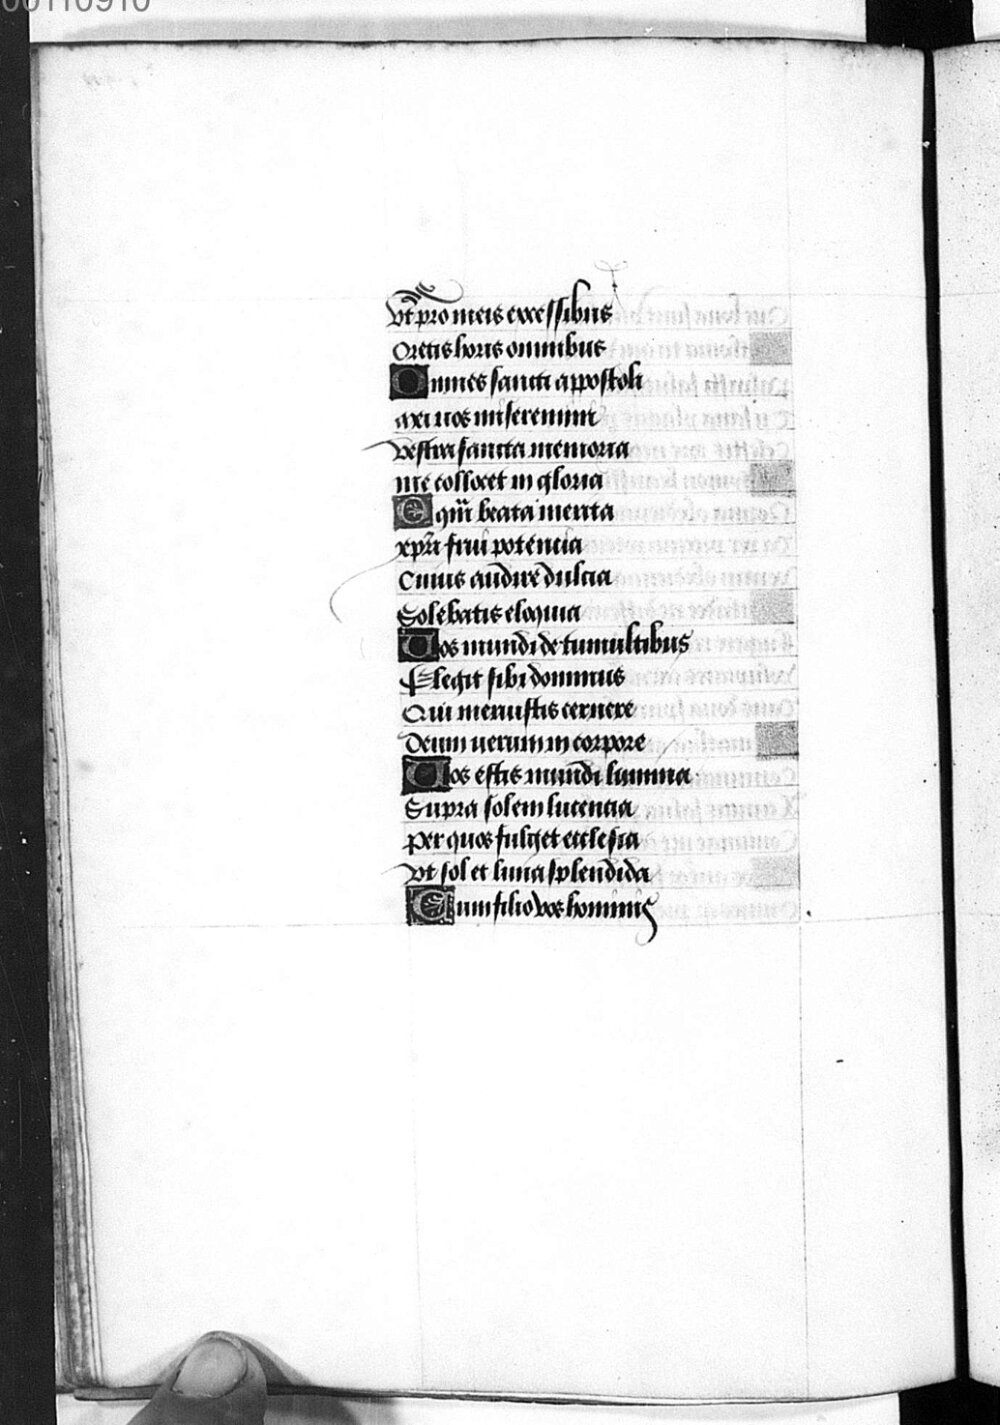 00110910
Vt pro meis excessibus
Oretis horis omnibus
Omnes sancti appostoli
mei uos miseremini
Vestra sancta memoria
me collocet in gloria
E quorum beata merita
xpi frui potencia
Cuius audire dulcia
Solebatis eloquia
Uos mundi de tumultibus
Elegit sibi dominus
Qui meruistis cernere
Deum uerum in corpore
Uos estis mundi lumina
Supra solem lucencia
Per quos fulget ecclesia
Vt sol et luna splendida
Cum filio vos hominis